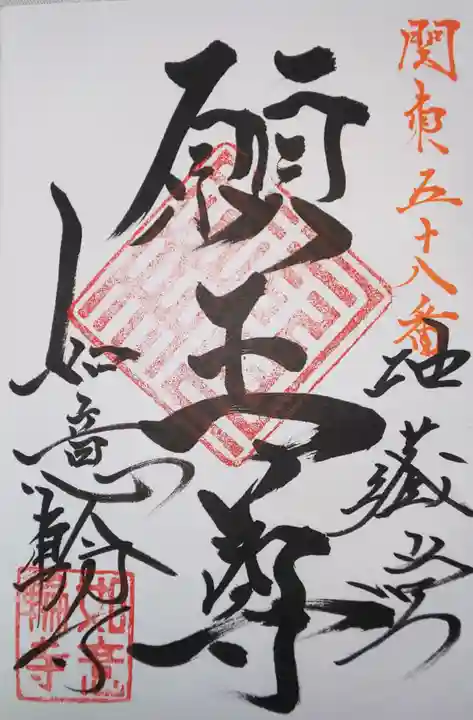 関東五十八番
地蔵
願王尊
如意輪寺
如意
輪寺